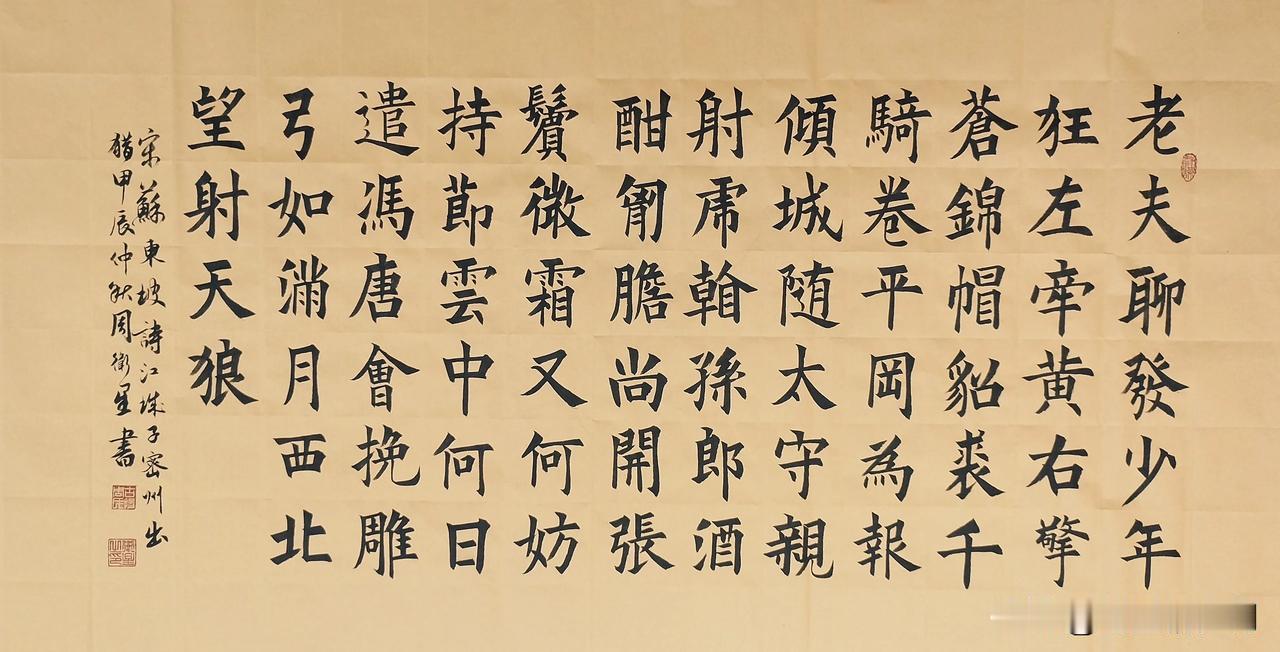 老夫聊發少年
狂左牽黄右擎
蒼錦帽貂裘千
騎卷平岡為報
傾城随太守親
射虎看孫郎酒
酣胷膽尚開張
鬢微霜又何妨
持節雲中何日
遣馮唐會挽雕
弓如滿月西北
望射天狼
宋蘇東坡詩江城子密州出
猎甲辰仲秋周衛星書